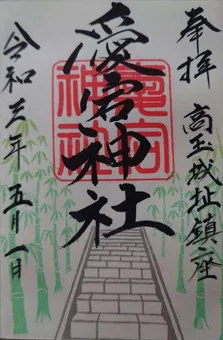 奉拝 高玉城址鎮座
愛宕神社
愛宕神社
令和三年五月一日